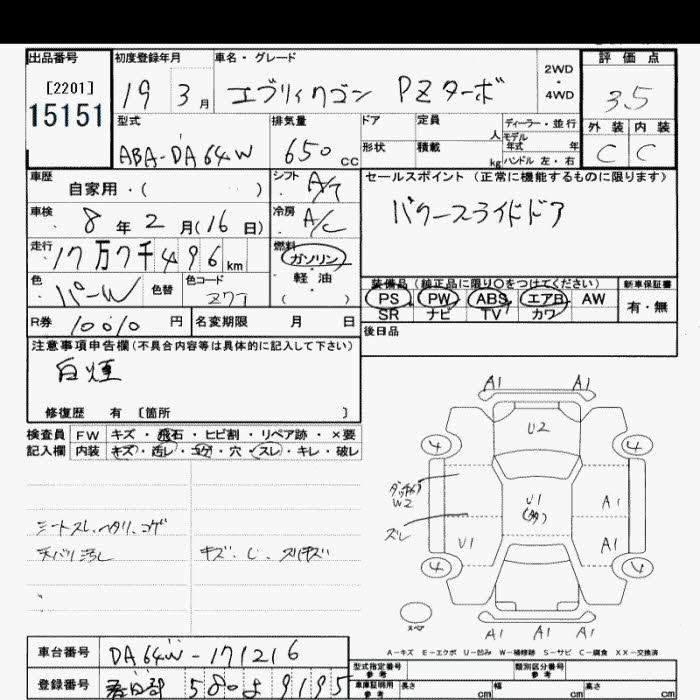 出品番号 初度登録年月 車名・グレード 2WD・4WD 評価点
[2201] 15151 19 3月 エブリィワゴン PZターボ 3.5
型式 排気量 ドア 定員 人 ディーラー・並行 外装 内装
ABA-DA64W 650 cc 形状 積載 kg モデル年式 年 ハンドル 左・右 C C
車歴 自家用・( ) シフト A/T セールスポイント (正常に機能するものに限ります)
車検 8年2月(16日) 冷房 A/C パワースライドドア
走行 17万7千496km 燃料 ガソリン・軽油・( )
色 パーW 色替 色コード Z7T 装備品(純正品に限り○をつけてください) 新車保証書
PS PW ABS エアB AW 有・無
SR ナビ TV カワ
R券 10010円 名変期限 月 日 後日品
注意事項申告欄(不具合内容等は具体的に記入して下さい)
白煙
修復歴 有 〔箇所 〕
検査員 FW キズ・飛石・ヒビ割・リペア跡・×要
記入欄 内装 キズ・汚レ・コゲ・穴・スレ・キレ・破レ
シートスレ、ヘタリ、コゲ
天バリ汚レ キズ、
A1 A1
U2
4 4
W2 U1 (多) A1
ズレ
U1 A1
4 4
スペア A1 A1 A1
A-キズ E-エクボ U-凹み W-補修跡 S-サビ C-腐食 XX-交換済
車台番号 DA64W-171216
登録番号 春日部 580 よ 9195
型式指定番号 参考 類別区分番号 参考
車庫証明用 参考 長さ cm 幅 cm 高さ cm